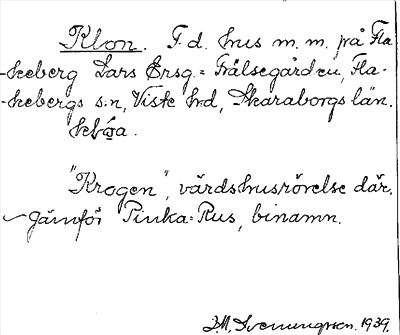 Klon. F. d. hus m. m. på Fla-
-keberg Lars Ersg. = Frälsegården, Fla-
-kebergs s:n, Viste hd, Skaraborgs län.
"Krogen", värdshusrörelse där.
Jämför Pinka-Rus, binamn.
J.M. Svenungsson. 1939.